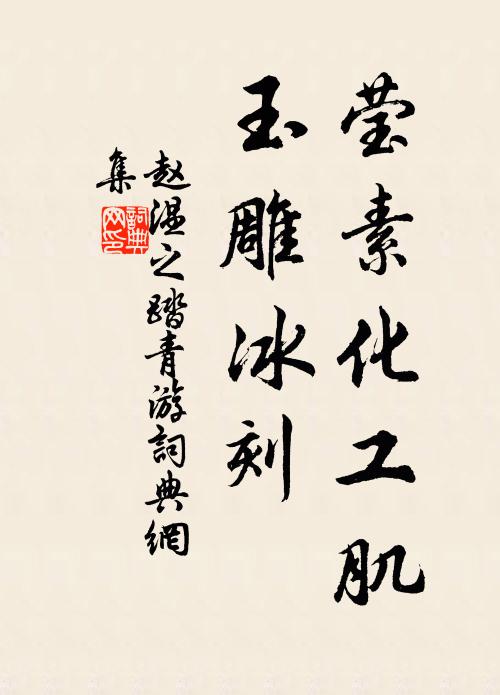 莹素化工肌
玉雕冰刻
赵温之踏青游詞典網
集
詞典网印